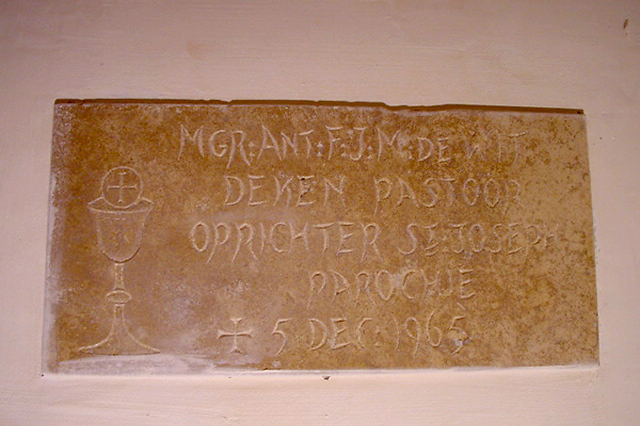 MGR: ANT: F: J: M: DE WIT
DEKEN PASTOOR
OPRICHTER ST: JOSEPH
PAROCHIE
+ 5 DEC: 1965